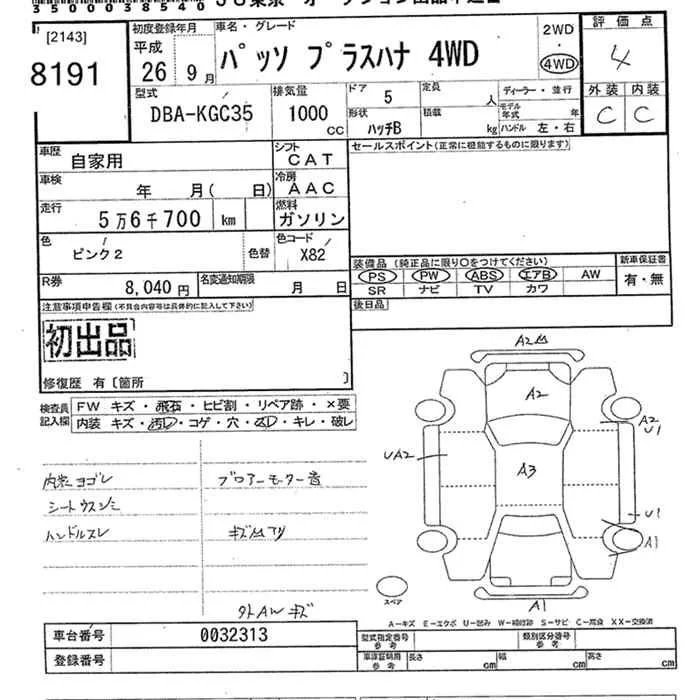 35000038540
[2143]
8191
初度登録年月
平成
26 9月
車名・グレード
パッソ プラスハナ 4WD
2WD
・
4WD
評価点
4
外装 内装
C C
型式
DBA-KGC35
排気量
1000
cc
ドア
5
形状
ハッチB
定員
人
積載
kg
ディーラー・並行
モデル年式 年
ハンドル 左・右
車歴
自家用
シフト
CAT
車検
年 月( 日)
冷房
AAC
走行
5万6千700 km
燃料
ガソリン
色
ピンク2
色替
色コード
X82
R券
8,040円
名変通知期限
月 日
セールスポイント(正常に機能するものに限ります)
装備品(純正品に限り○をつけてください)
PS PW ABS エアB AW
SR ナビ TV カワ
新車保証書
有・無
後日品
注意事項申告欄(不具合内容等は具体的に記入して下さい)
初出品
修復歴 有〔箇所 〕
検査員
記入欄
FW キズ・飛石・ヒビ割・リペア跡・×要
内装 キズ・汚レ・コゲ・穴・凹レ・キレ・破レ
内装ヨゴレ
ブロアーモーター音
シートウスジミ
ハンドルスレ
外AWキズ
A2
A2
A2
U1
UA2
A3
U1
A1
A1
スペア
A-キズ E-エクボ U-凹み W-補修跡 S-サビ C-腐食 XX-交換済
車台番号
0032313
登録番号
型式指定番号
参考
類別区分番号
参考
車庫証明用
参考
長さ cm
幅 cm
高さ cm